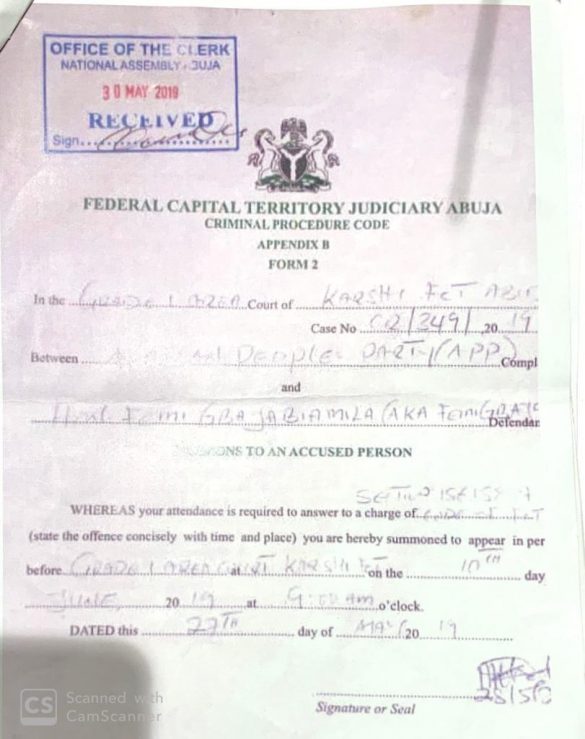 OFFICE OF THE CLERK
NATIONAL ASSEMBLY
30 MAY 2019
RECEIVED
Sign
FEDERAL CAPITAL TERRITORY JUDICIARY ABUJA
CRIMINAL PROCEDURE CODE
APPENDIX B
FORM 2
In the GRADE 1 AREA Court of KARSHI FCT
Case No CR/349/ 20 19
Between PEOPLES PARTY (APP) Compl
and
FEMI GBAJABIAMILA (AKA FEMI
Defendan
TO AN ACCUSED PERSON
WHEREAS your attendance is required to answer to a charge of
(state the offence concisely with time and place) you are hereby summoned to appear in per
before GRADE 1 AREA COURT KARSHI FCT on the 10TH day
JUNE 20 19 at 9:00am o'clock.
DATED this 27TH day of MAY 20 19
Signature or Seal
CS Scanned with
CamScanner